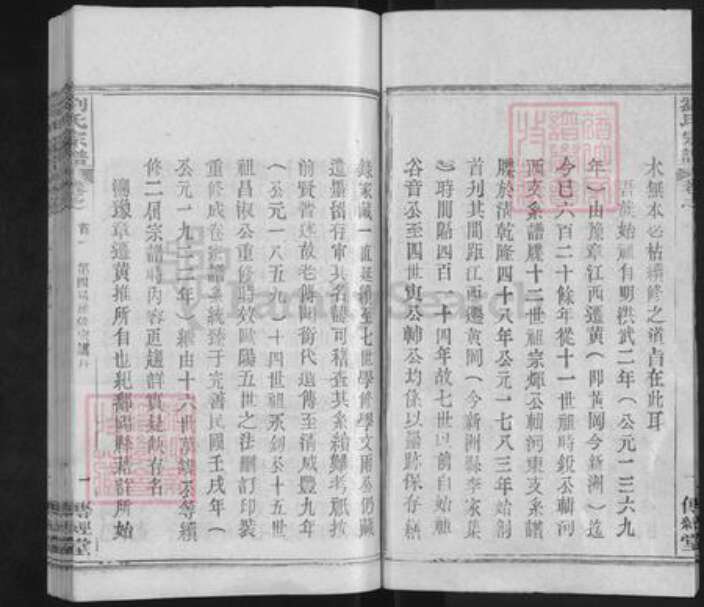 木無本必枯續修之道責在此耳
吾族始祖自明洪武二年（公元一三六九
年）由豫章江西遷黃（即黃岡今新洲）迄
今已六百二十餘年從十一世祖時銀公輯河
西支系譜牒十二世祖宗煇公輯河東支系譜
牒於清乾隆四十八年公元一七八三年始創
首列其間距江西遷黃岡（今新洲縣李家集
）時間隔四百一十四年故七世以前自始祖
谷音公至四世旗公輔公均係以墨跡保存繕
錄家藏一直延續至七世學修學文兩公仍藏
遺墨猶存审其名諱可稽查其系統難考祇按
前賢普述故老傳聞衛代遞傳至清咸豐九年
（公元一八五九）十四世祖永釗公十五世
祖昌淑公重修時效歐陽五世之法刪訂印裝
重修成卷宗譜系統臻于完善民國壬戌年（
公元一九二二年）續由十六世 公等續
修二屆宗譜時內容更趨詳實是缺者名
溯豫章遷黃推所自也紀鄱陽縣籍詳所始
劉氏宗譜
卷之
首一
一
傳經堂
劉氏宗譜
卷之
一
傳經堂
FamilySearch